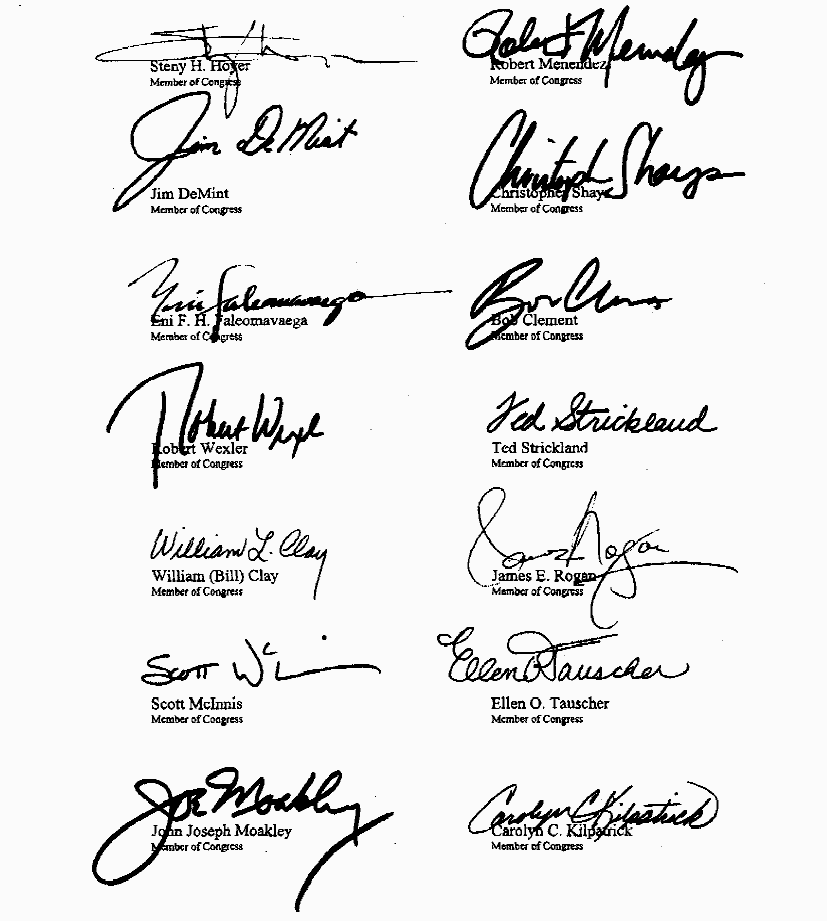 Steny H. Hoyer
Member of Congress
Robert Menendez
Robert Menendez
Member of Congress
Jim DeMint
Jim DeMint
Member of Congress
Christopher Shays
Christopher Shays
Member of Congress
Eni Faleomavaega
Eni F. H. Faleomavaega
Member of Congress
Bob Clement
Bob Clement
Member of Congress
Robert Wexler
Robert Wexler
Member of Congress
Ted Strickland
Ted Strickland
Member of Congress
William L. Clay
William (Bill) Clay
Member of Congress
James Rogan
James E. Rogan
Member of Congress
Scott McInnis
Member of Congress
Ellen O Tauscher
Ellen O. Tauscher
Member of Congress
Joe Moakley
John Joseph Moakley
Member of Congress
Carolyn C Kilpatrick
Carolyn C. Kilpatrick
Member of Congress